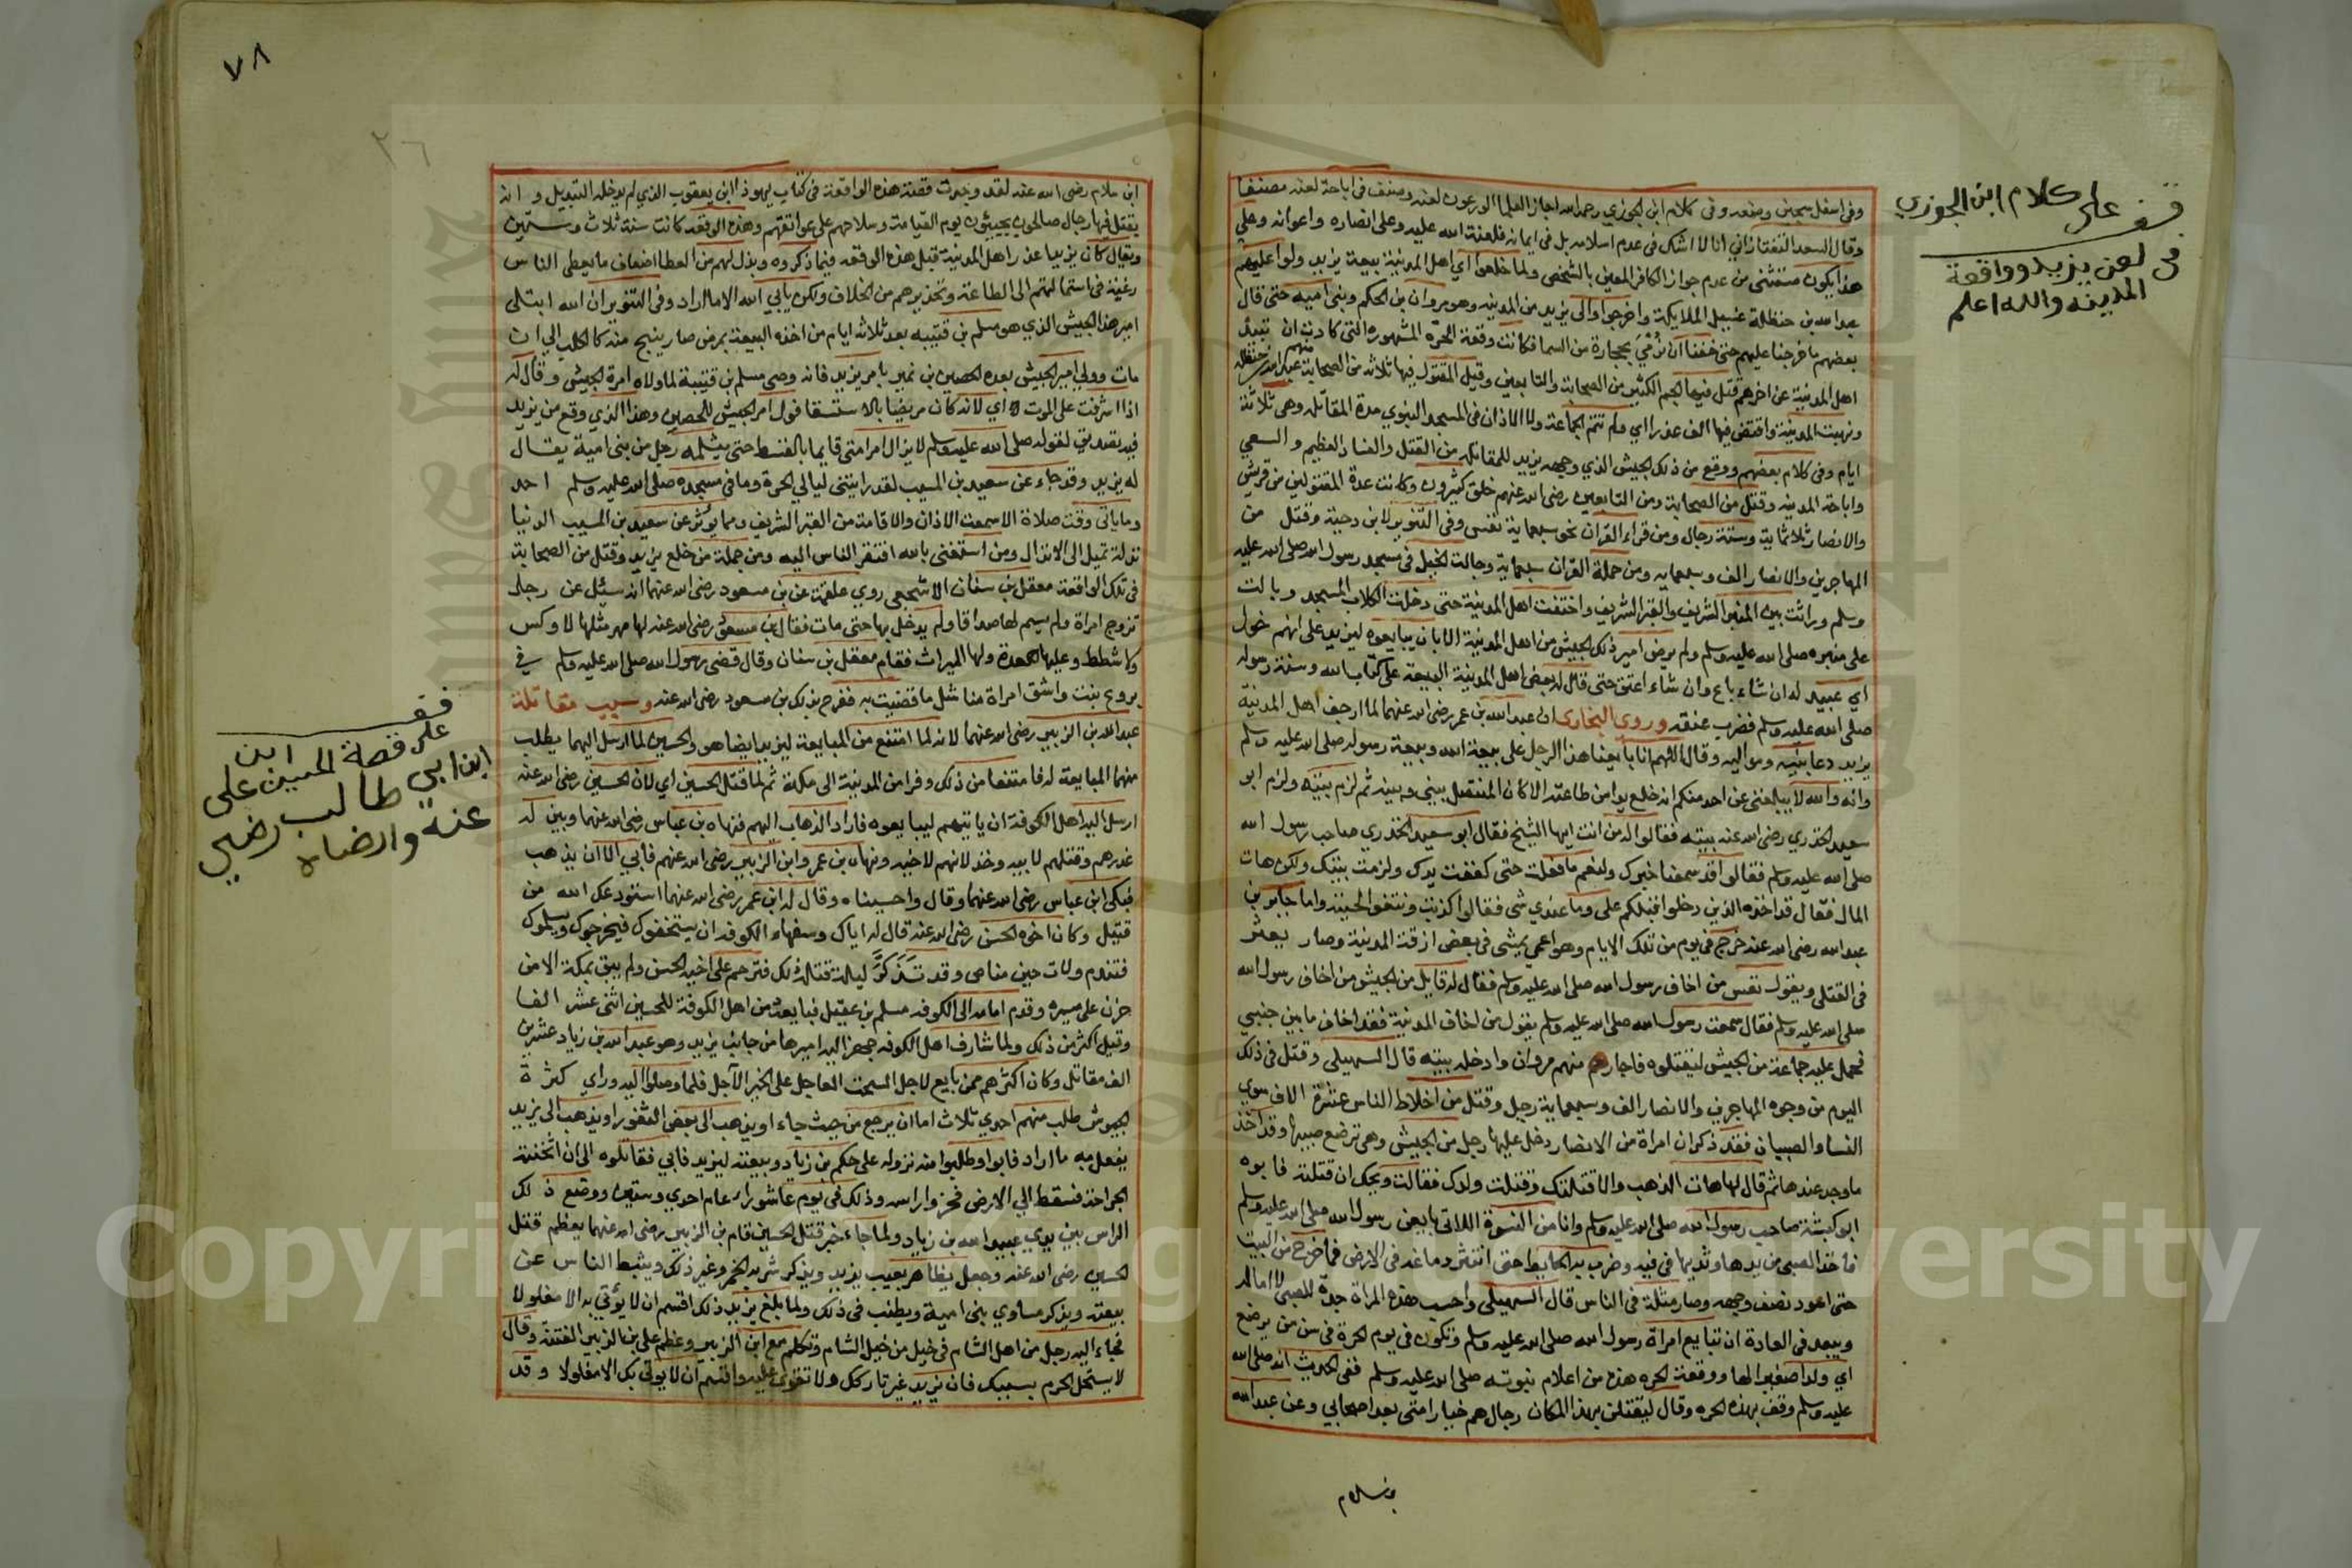 قف على كلام ابن الجوزي
في لعن يزيد وواقعة
المدينه والله اعلم
وفي اسفل سجين وضعه وفي كلام ابن الجوزي رحمه الله اجاز العلما الورعون لعنه وصنف في اباحة لعنه مصنفا
وقال السعد التفتازاني انا لا اشك في عدم اسلامه بل في ايمانه فلعنة الله عليه وعلى انصاره واعوانه وعلي
هذا يكون مستثنى من عدم جواز الكافر المعين بالشخص ولما خلعوا اي اهل المدينة بيعة يزيد ولوا عليهم
عبد الله بن حنظلة غسيل الملايكة واخرجوا والى يزيد من المدينه وهو مروان بن الحكم وبني اميه حتى قال
بعضهم ما خرجنا عليهم حتى خفنا ان نُرْمَى بحجارة من السما فكانت وقعة الحرّه المشهوره التي كادت ان تبيد
اهل المدينة عن اخرهم قتل فيها الجم الكثير من الصحابة والتابعين وقيل المقتول فيها ثلاثه من الصحابة منهم عبد الله بن حنظله
ونهبت المدينة وافتض فيها الف عذرا اي ولم تتم الجماعة ولا الاذان في المسجد النبوي مدة المقاتله وهي ثلاثة
ايام وفي كلام بعضهم ووقع من ذلك الجيش الذي وجهه يزيد للمقاتله من القتل والفساد العظيم و السبي
واباحة المدينه وقتل من الصحابة ومن التابعين رضي الله عنهم خلق كثيرون وكانت عدة المقتولين من قريش
والانصار ثلاثماية وستة رجال ومن قراء القران نحو سبعماية نفس وفي التنوير لابن دحية وقتل من
المهاجرين والانصار الف وسبعمايه ومن حملة القران سبعماية وجالت الخيل في مسجد رسول الله صلى الله عليه
وسلم وراثت بين المنبر الشريف والقبر الشريف واختفت اهل المدينة حتى دخلت الكلاب المسجد وبالت
على منبره صلى الله عليه وسلم ولم يرض امير ذلك الجيش من اهل المدينة الا بان يبايعوه ليزيد على انهم خول
اي عبيد له ان شاء باع وان شاء اعتق حتى قال له بعض اهل المدينة البيعة على كتاب الله وسنة رسوله
صلى الله عليه وسلم فضرب عنقه وروى البخارى ان عبد الله بن عمر رضي الله عنهما لما ارجف اهل المدينة
يزيد دعا بنيه ومواليه وقال اللهم انا بايعنا هذا الرجل على بيعة الله وبيعة رسوله صلى الله عليه وسلم
وانه والله لا يبلغني عن احد منكم انه خلع يدا من طاعته الا كان الفيصل بيني وبينه ثم لزم بيته ولزم ابو
سعيد الخدري رضي الله عنه بيته فقالوا له من انت ايها الشيخ فقال ابو سعيد الخدري صاحب رسول الله
صلى الله عليه وسلم فقالوا قد سمعنا خبرك ولنعم ما فعلت حتى كففت يدك ولزمت بيتك ولكن هات
المال فقال قد اخذه الذين دخلوا قبلكم علي وما عندي شي فقالوا كذبت ونتفوا لحيته واما جابر بن
عبد الله رضي الله عنه خرج في يوم من تلك الايام وهو اعمى يمشي في بعض ازقة المدينة وصار يعثر
في القتلى ويقول تعس من اخاف رسول الله صلى الله عليه وسلم فقال له قايل من الجيش من اخاف رسول الله
صلى الله عليه وسلم فقال سمعت رسول الله صلى الله عليه وسلم يقول من اخاف المدينة فقد اخاف ما بين جنبي
فحمل عليه جماعة من الجيش ليقتلوه فاجاره منهم مروان وادخله بيته قال السهيلي وقتل في ذلك
اليوم من وجوه المهاجرين والانصار الف وسبعماية رجل وقتل من اخلاط الناس عشرة الاف سوى
النسا والصبيان فقد ذكر ان امراة من الانصار دخل عليها رجل من الجيش وهي ترضع صبيها وقد اخذ
ما وجد عندها ثم قال لها هات الذهب والا قتلتك وقتلت ولدك فقالت ويحك ان قتلته فابوه
ابو كبشة صاحب رسول الله صلى الله عليه وسلم وانا من النسوة اللاتي بايعن رسول الله صلى الله عليه وسلم
فاخذ الصبي من يدها وثديها في فيه وضرب به الحايط حتى انتثر دماغه في الارض فما خرج من البيت
حتى اسود نصف وجهه وصار مثلة في الناس قال السهيلى واحسب هذه المراة جدة للصبي لا اما له
ويبعد في العادة ان تبايع امراة رسول الله صلى الله عليه وسلم وتكون في يوم الحرة في سن من يرضع
اي ولدا صغيرا لها ووقعة الحره هذه من اعلام نبوته صلى الله عليه وسلم ففي الحديث انه صلى الله
عليه وسلم وقف بهذه الحره وقال ليقتلن بهذا المكان رجال هم خيار امتى بعد اصحابي وعن عبد الله
بن سلام
٧٨
٢٦
ابن سلام رضي الله عنه لقد وجدت قصة هذه الواقعة في كتاب يهوذا ابن يعقوب الذي لم يدخله التبديل و انه
يقتل فيها رجال صالحون يجيئون يوم القيامة وسلاحهم على عواتقهم وهذه الوقعه كانت سنة ثلاث وستين
ويقال كان يزيد اعذر اهل المدينة قبل هذه الوقعه فيما ذكروه وبذل لهم من العطا اضعاف ما يعطي الناس
رغبة في استمالتهم الى الطاعة وتحذيرهم من الخلاف ولكن يابي الله الا ما اراد وفي التنوير ان الله ابتلى
امير هذا الجيش الذي هو مسلم بن قتيبه بعد ثلاثه ايام من اخذه البيعة بمرض صار ينبح منه كالكلب الي ان
مات وولي امير الجيش بعده الحصين بن نمير بامر يزيد فانه وصى مسلم بن قتيبة لما ولاه امرة الجيش وقال له
اذا اشرفت على الموت اي لانه كان مريضا بالاستسقا فول امر الجيش للحصين وهذا الذي وقع من يزيد
فيه تصديق لقوله صلى الله عليه وسلم لا يزال امر امتى قايما بالقسط حتى يثلمه رجل من بني امية يقال
له يزيد وقد جاء عن سعيد بن المسيب لقد رايتني ليالي الحرة وما في مسجده صلى الله عليه وسلم احد
وما ياتى وقت صلاة الا سمعت الاذان والاقامة من القبر الشريف ومما يؤثر عن سعيد بن المسيب الدنيا
نذلة تميل الى الانذال ومن استغنى بالله افتقر الناس اليه ومن جملة من خلع يزيد وقتل من الصحابة
في تلك الواقعة معقل بن سنان الاشجعي روي علقمة عن بن مسعود رضي الله عنهما انه سئل عن رجل
تزوج امراة ولم يسم لها صداقا ولم يدخل بها حتى مات فقال بن مسعود رضي الله عنه لها مهر مثلها لا وكس
ولا شطط وعليها العدة ولها الميراث فقام معقل بن سنان وقال قضى رسول الله صلى الله عليه وسلم في
بروع بنت واشق امراة منا مثل ما قضيت به ففرح بذلك بن مسعود رضي الله عنه وسبب مقاتلة
عبد الله بن الزبير رضي الله عنهما لانه لما امتنع من المبايعة ليزيد ايضا هو والحسين لما ارسل اليهما يطلب
منهما المبايعة له فامتنعا من ذلك وفرا من المدينة الى مكة ثم لما قتل الحسين اي لان الحسين رضي الله عنه
ارسل اليه اهل الكوفة ان ياتيهم ليبايعوه فاراد الذهاب اليهم فنهاه بن عباس رضي الله عنهما وبين له
غدرهم وقتلهم لابيه وخذلانهم لاخيه ونهاه بن عمر وابن الزبير رضي الله عنهم فابي الا ان يذهب
فبكى ابن عباس رضي الله عنهما وقال واحسيناه وقال له ابن عمر رضي الله عنهما استودعك الله من
قتيل وكان اخوه الحسن رضي الله عنه قال له اياك وسفهاء الكوفه ان يستخفوك فيخرجوك ويسلموك
فتندم ولات حين مناص وقد تَذَكَّرَ ليلة قتله ذلك فترحم على اخيه الحسن ولم يبق بمكة الا من
حزن على مسيره وقدم امامه الى الكوفه مسلم بن عقيل فبايعه من اهل الكوفة للحسين اثنى عشر الفا
وقيل اكثر من ذلك ولما شارف اهل الكوفه جهز اليه اميرها من جانب يزيد وهو عبيد الله بن زياد عشرين
الف مقاتل وكان اكثرهم ممن بايع لاجل السحت العاجل على الخير الآجل فلما وصلوا اليه وراي كثرة
الجيوش طلب منهم احدي ثلاث اما ان يرجع من حيث جاء او يذهب الى بعض الثغور او يذهب الى يزيد
يفعل به ما اراد فابوا وطلبوا منه نزوله على حكم بن زياد وبيعته ليزيد فابي فقاتلوه الى ان اثخنته
الجراحة فسقط الي الارض فحزوا راسه وذلك في يوم عاشوراء عام احدي وستين ووضع ذلك
الراس بين يدي عبيد الله بن زياد ولما جاء خبر قتل الحسين قام بن الزبير رضي الله عنهما يعظم قتل
الحسين رضي الله عنه وجعل يظاهر بعيب يزيد ويذكر شربه الخمر وغير ذلك ويثبط الناس عن
بيعته ويذكر مساوي بني امية ويطنب في ذلك ولما بلغ يزيد ذلك اقسم ان لا يؤتي به الا مغلولا
فجاء اليه رجل من اهل الشام في خيل من خيل الشام وتكلم مع ابن الزبير وعظم على بن الزبير الفتنة وقال
لا يستحل الحرم بسببك فان يزيد غير تاركك ولا تقوى عليه واقسم ان لا يؤتي بك الا مغلولا وقد
قف
على قصة الحسين ابن على
ابن ابي طالب رضي
عنه وارضاه
Copyright © King Saud University